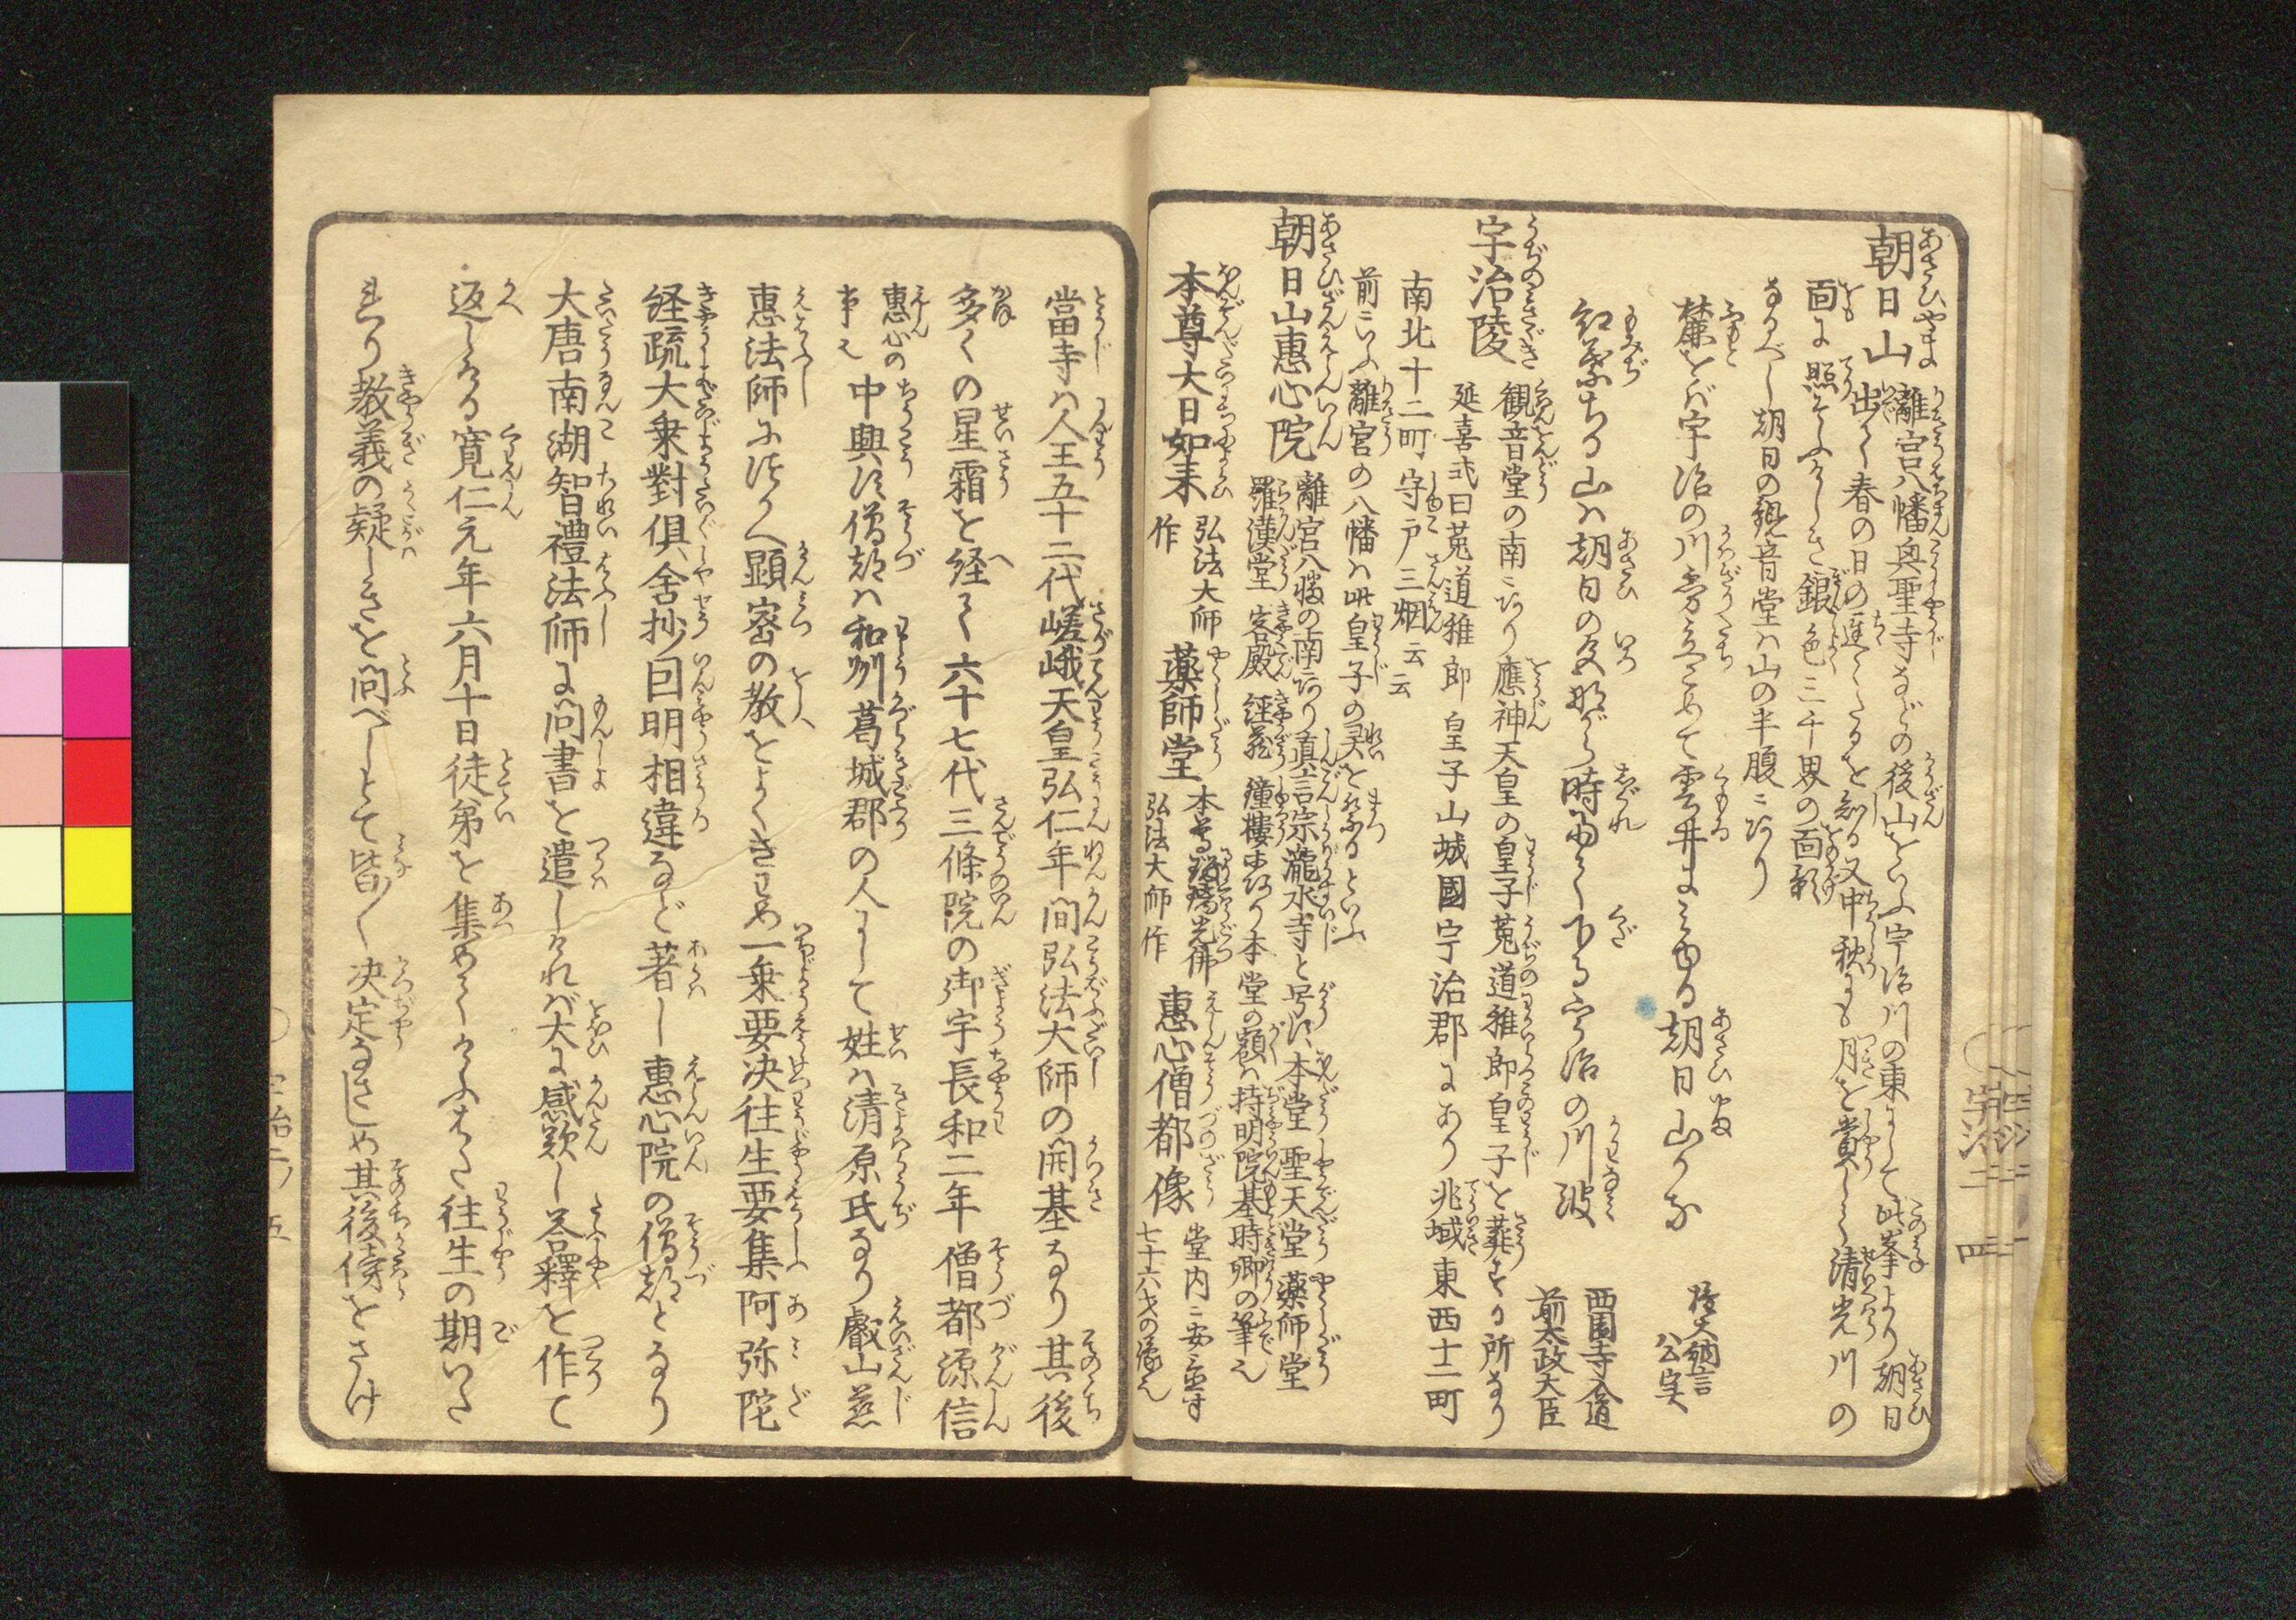 朝日山 離宮八幡奥聖寺などの後山をいふ宇治川の東にして此峯より朝日
出て春の日の遅々たるを知る又中秋にも月を賞して清光川の
面に照そふけしき銀色三千界の面影
なるべし朝日の観音堂は山の半腹にあり
麓をば宇治の川霧立こめて雲井に見ゆる朝日山かな
権大納言
公実
紅葉ちる山は朝日の色ながら時雨てくだるうぢの川波
西園寺入道
前太政大臣
宇治陵 観音堂の南にあり應神天皇の皇子菟道稚郎皇子を葬する所なり
延喜式曰菟道稚郎皇子山城國宇治郡にあり兆域東西十二町
南北十二町守戸三烟云云
前にいふ離宮の八幡は此皇子の灵をまつるといふ
朝日山惠心院 離宮八幡の南にあり真言宗瀧水寺と号す本堂聖天堂薬師堂
羅漢堂客殿経蔵鐘樓等あり本堂の額は持明院基時卿の筆也
本尊大日如来 弘法大師
作
薬師堂 本尊瑠璃光佛
弘法大師作
惠心僧都像 堂内に安置す
七十六才の像也
當寺は人王五十二代嵯峨天皇弘仁年間弘法大師の開基なり其後
多くの星霜を経て六十七代三條院の御宇長和二年僧都源信
惠心の
事也
中興す僧都は和州葛城郡の人にして姓は清原氏なり叡山慈
惠法師にしたがへ顕密の教をよくきはめ一乗要决往生要集阿弥陀
経疏大乗對倶舎抄因明相違など著し惠心院の僧都となり
大唐南湖智禮法師に問書を遣しければ大に感歎し荅釋を作て
返しける寛仁元年六月十日徒弟を集めてけふはた往生の期いた
れり教義の疑しきを問べしとて皆〳〵决定なさしめ其後傍をさけ
宇治二ノ 四
宇治二ノ 五